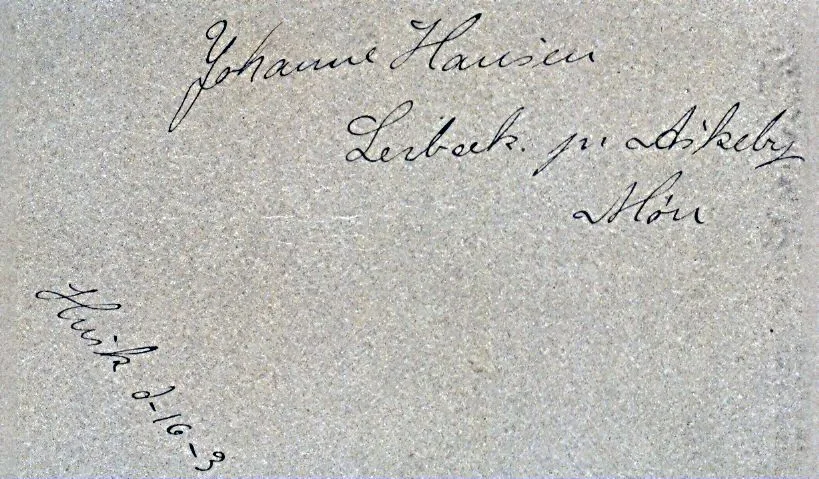 Johanne Hansen
Lerbæk. pr. Askeby
Møn
Husk d-16-3